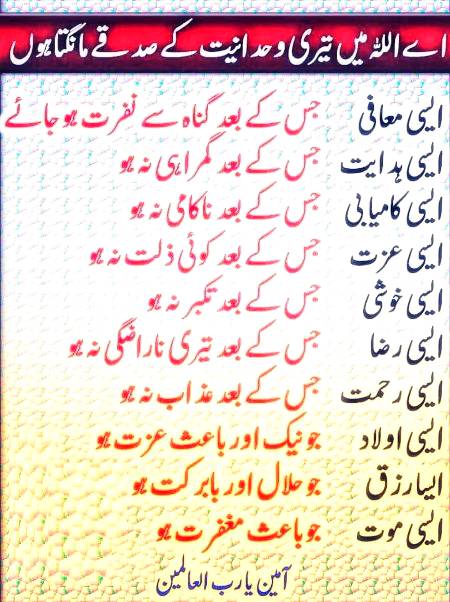 اے اللہ میں تیری وحدانیت کے صدقے مانگتا ہوں
ایسی معافی جس کے بعد گناہ سے نفرت ہو جائے
ایسی ہدایت جس کے بعد گمراہی نہ ہو
ایسی کامیابی جس کے بعد ناکامی نہ ہو
ایسی عزت جس کے بعد کوئی ذلت نہ ہو
ایسی خوشی جس کے بعد تکبر نہ ہو
ایسی رضا جس کے بعد تیری ناراضگی نہ ہو
ایسی رحمت جس کے بعد عذاب نہ ہو
ایسی اولاد جو نیک اور باعث عزت ہو
ایسا رزق جو حلال اور بابرکت ہو
ایسی موت جو باعث مغفرت ہو
آمین یا رب العالمین